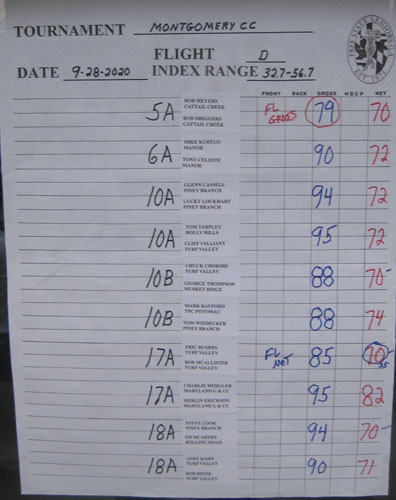 TOURNAMENT MONTGOMERY CC
FLIGHT D
DATE 9-28-2020 INDEX RANGE 32.7-56.7
FRONT BACK GROSS HDCP NET
BOB MEYERS
CATTAIL CREEK
5A FL GROSS 79 70
BOB DRIGGERS
CATTAIL CREEK
MIKE KURYLO
MANOR
6A 90 72
TONY CELESTE
MANOR
GLENN CASSELL
PINEY BRANCH
10A 94 72
LUCKY LOCKHART
PINEY BRANCH
TOM TARPLEY
HOLLY HILLS
10A 95 72
CLIFF VALLIANT
TURF VALLEY
CHUCK CHOKSHI
TURF VALLEY
10B 88 70
GEORGE THOMPSON
MUSKET RIDGE
MARK RAYFORD
TPC POTOMAC
10B 88 74
TOM WIEDECKER
PINEY BRANCH
ERIC
TURF VALLEY
17A FL NET 85 70
BOB MCALLISTER
TURF VALLEY
CHARLIE MERGLER
MARYLAND G & CC
17A 95 82
MERLIN ERICKSON
MARYLAND G & CC
STEVE COOK
PINEY BRANCH
18A 94 70
ED MCARTHY
ROLLING ROAD
ANDY KAHN
TURF VALLEY
18A 90 71
BOB REESE
TURF VALLEY